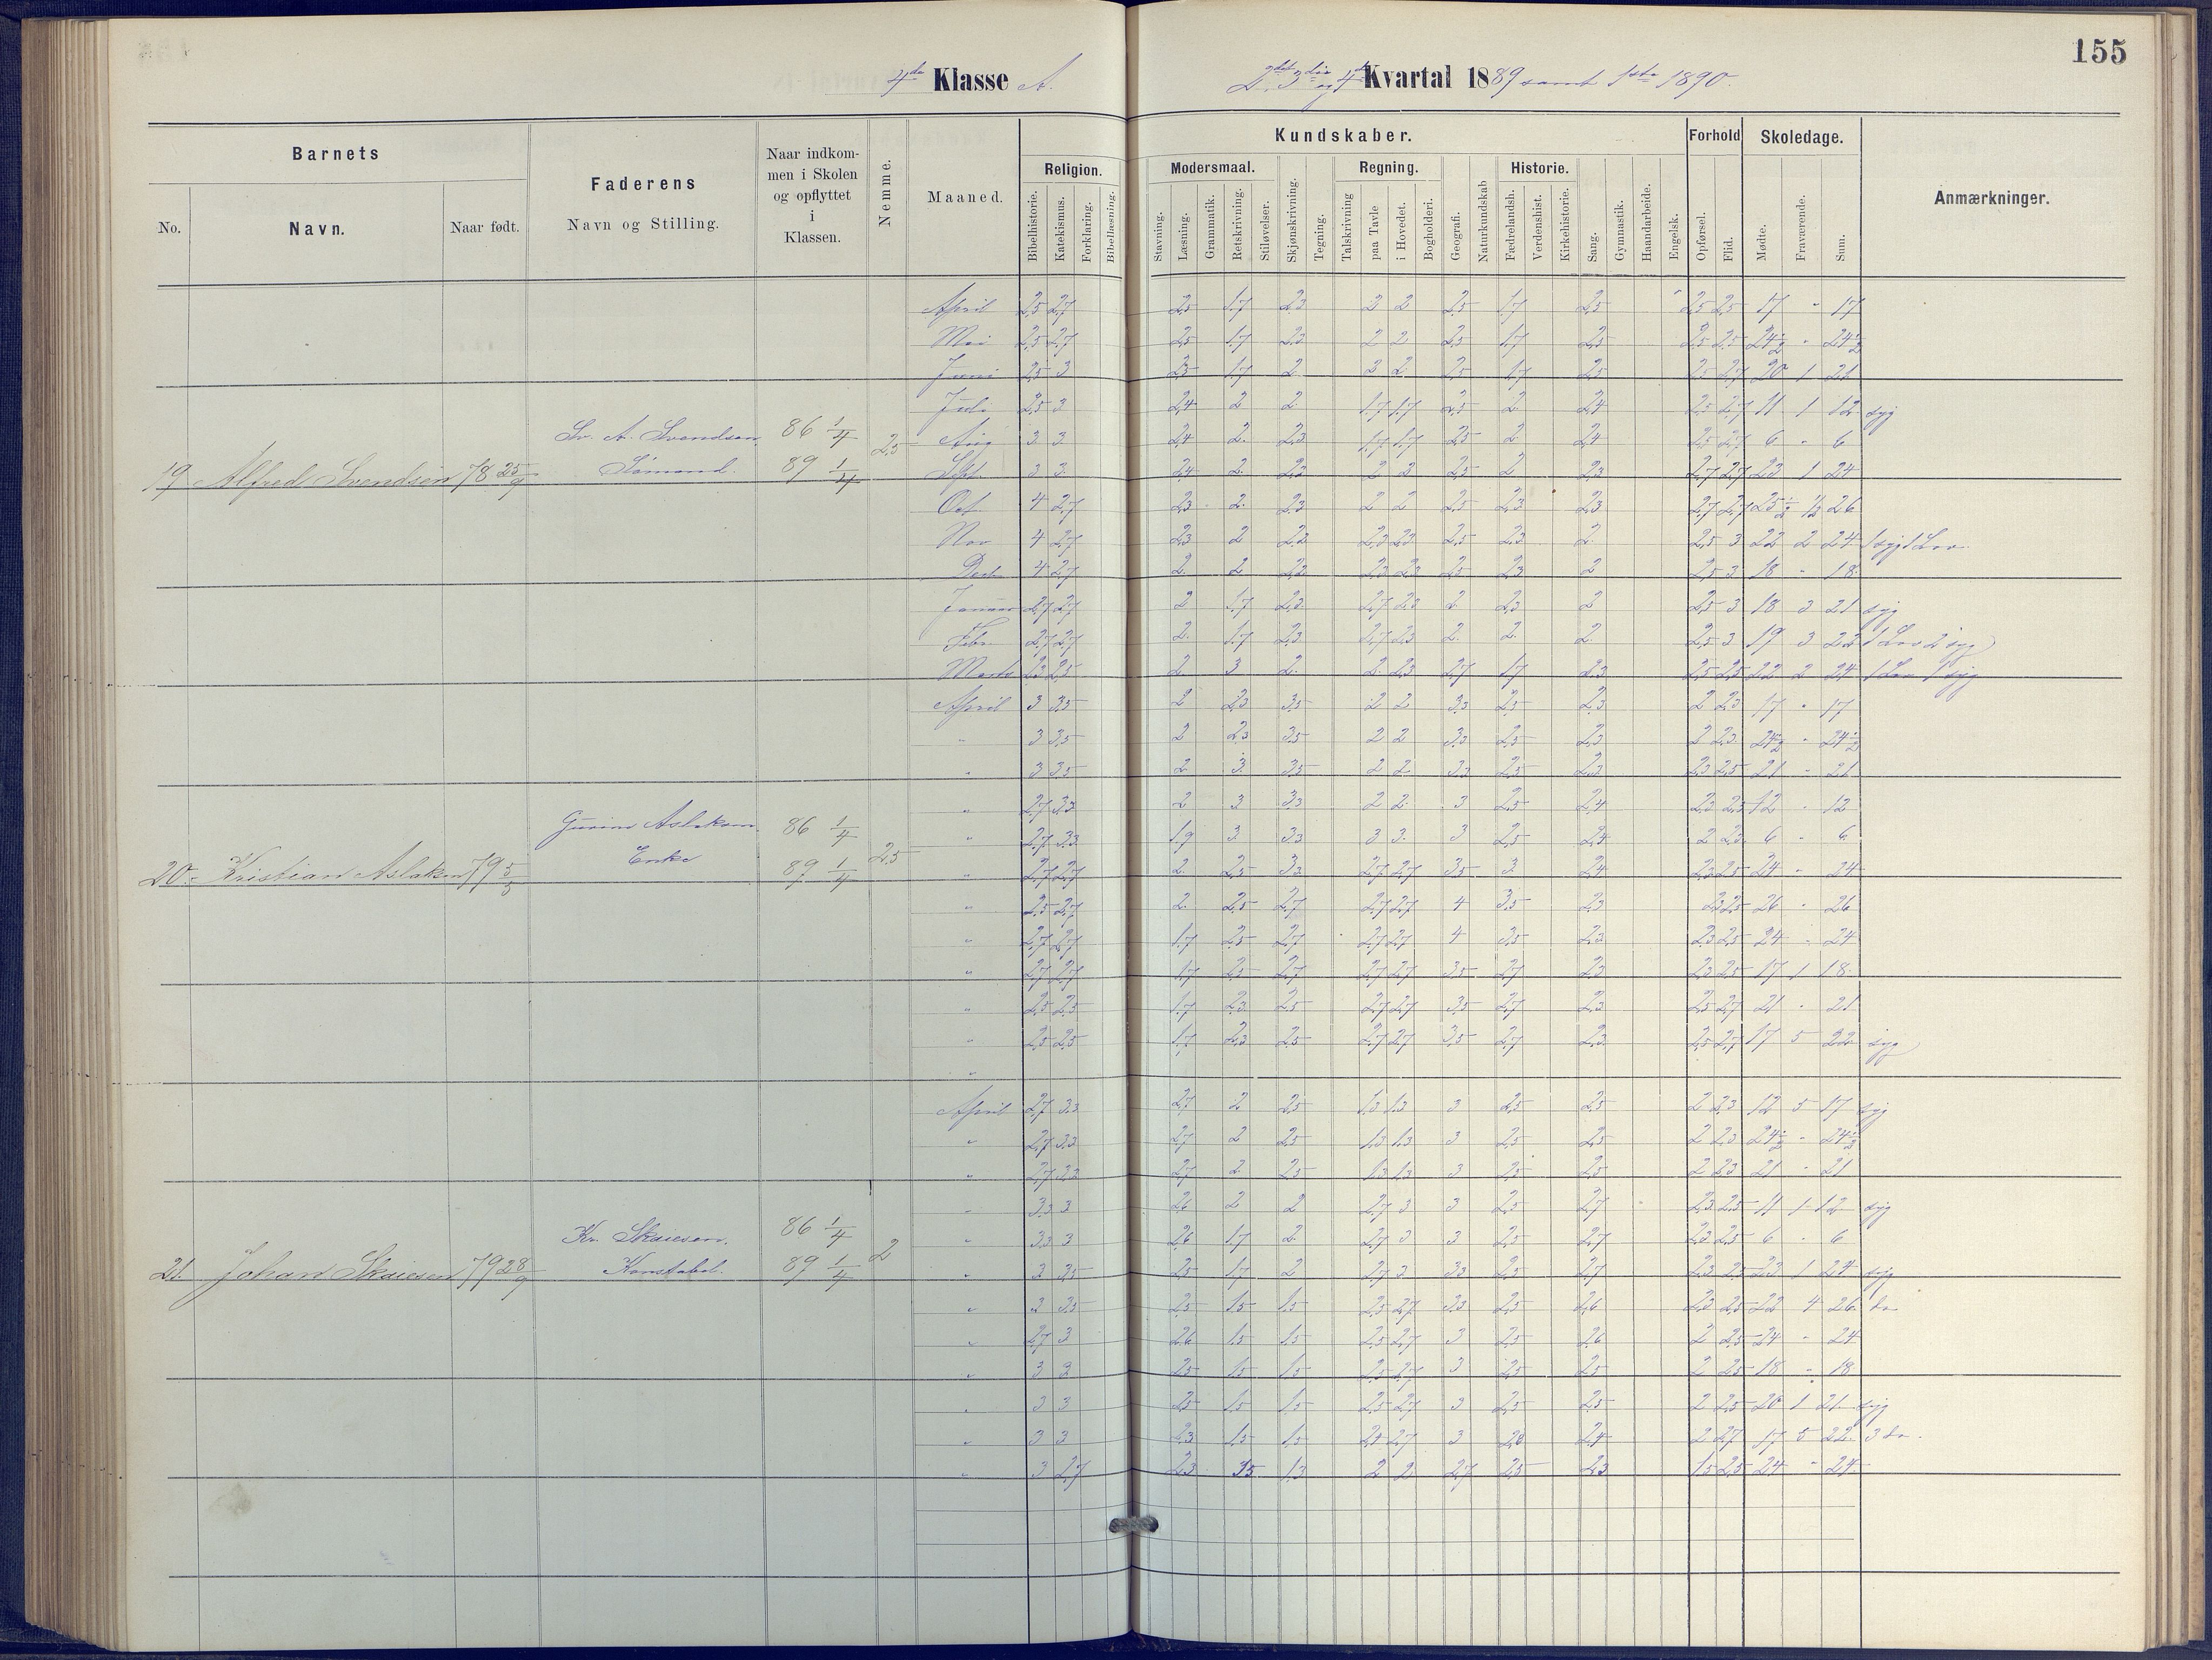 155
4de Klasse A.
2det 3die og 4de Kvartal 1889 samt 1ste 1890.
Barnets
Faderens
Navn og Stilling.
Naar indkom-
men i Skolen
og opflyttet
i
Klassen.
Nemme.
Maaned.
Kundskaber.
Forhold
Skoledage.
Anmærkninger.
No.
Navn.
Naar født.
Religion.
Modersmaal.
Regning.
Historie.
Bibelhistorie.
Katekismus.
Forklaring.
Bibellæsning.
Stavning.
Læsning.
Grammatik.
Retskrivning.
Stiløvelser.
Skjønskrivning.
Tegning.
Talskrivning
paa Tavle
i Hovedet.
Bogholderi.
Geografi.
Naturkundskab
Fædrelandsh.
Verdenshist.
Kirkehistorie.
Sang.
Gymnastik.
Haandarbeide.
Engelsk.
Opførsel.
Flid.
Mødte.
Fraværende.
Sum.
19 Alfred Svendsen 78 25/9
Sv. A. Svendsen
Sømand.
86 1/4
89 1/4
2,5
April 2,5 2,7 2,5 1,7 2,3 2 2 2,5 1,7 2,5 2,5 2,5 17 " 17
Mai 2,5 2,7 2,5 1,7 2,3 2 2 2,5 1,7 2,5 2,5 2,5 24 1/2 " 24 1/2
Juni 2,5 3 2,5 1,7 2 2 2 2,5 1,7 2,5 2,5 2,7 20 1 21
Juli 2,5 3 2,4 2 2 1,7 1,7 2,5 2 2,4 2,5 2,7 11 1 12 syg
Aug 3 3 2,4 2 2,3 1,7 1,7 2,5 2 2,4 2,5 2,7 6 " 6
Sept. 3 3 2,4 2 2,3 2 2 2,5 2 2,3 2,7 2,7 23 1 24
Oct. 4 2,7 2,3 2 2,3 2 2 2,5 2,3 2,3 2,7 2,7 25 1/2 1/2 26
Nov 4 2,7 2,3 2 2,3 2,3 2,3 2,5 2,3 2 2,5 3 22 2 24 1 syg 1 Lov
Decbr 4 2,7 2 2 2,3 2,3 2,3 2,5 2,3 2 2,5 3 18 " 18
Januar 2,7 2,7 2 1,7 2,3 2,7 2,3 2 2,3 2 2,5 3 18 3 21 syg
Febr. 2,7 2,7 2 1,7 2,3 2,7 2,3 2 2 2 2,5 3 19 3 22 1 Lov 2 syg
Marts 2,3 2,5 2 3 2 2 2,3 2,7 1,7 2,3 2,5 2,5 22 2 24 1 Lov 1 syg
20. Kristian Aslaksen 79 5/5
Aslaksen
Enke
86 1/4
89 1/4
2,5
April 3 3,5 2 2,3 3,5 2 2 3,3 2,5 2,3 2 2,3 17 " 17
" 3 3,5 2 2,3 3,5 2 2 3,3 2,5 2,3 2 2,3 24 1/2 " 24 1/2
" 3 3,5 2 3 3,5 2 2 3,3 2,5 2,3 2,3 2,5 21 " 21
" 2,7 3,3 2 3 3,3 2 2 3 2,5 2,4 2,3 2,3 12 " 12
" 2,7 3,3 1,9 3 3,3 3 3 3 2,5 2,4 2 2,3 6 " 6
" 2,7 2,7 2 2,5 3,3 2,7 2,7 3,5 3 2,4 2,3 2,5 24 " 24
" 2,5 2,7 2 2,5 2,7 2,7 2,7 4 3,5 2,3 2,3 2,5 26 " 26
" 2,7 2,7 1,7 2,5 2,7 2,7 2,7 4 3,5 2,3 2,3 2,5 24 " 24
" 2,7 2,7 1,7 2,5 2,7 2,7 2,7 3,5 2,7 2,3 2,3 2,5 17 1 18
" 2,5 2,5 1,7 2,3 2,5 2,7 2,7 3,5 2,7 2,3 2,5 2,7 21 " 21
" 2,5 2,5 1,7 2,3 2,5 2,7 2,7 3,5 2,7 2,3 2,5 2,7 17 5 22 syg
"
21. Johan Skaiesen 79 28/9
Kr. Skaiesen.
Konstabel.
86 1/4
89 1/4
2
April 2,7 3,3 2,7 2 2,5 1,3 1,3 3 2,5 2,5 2 2,3 12 5 17 syg
" 2,7 3,3 2,7 2 2,5 1,3 1,3 3 2,5 2,5 2 2,3 24 1/2 " 24 1/2
" 2,7 3,3 2,7 2 2,5 1,3 1,3 3 2,5 2,5 2 2,3 21 " 21
" 3,3 3 2,6 2 2 2,7 3 3 2,5 2,7 2,3 2,5 11 1 12 syg
" 3,3 3 2,6 1,7 2 2,7 3 3 2,5 2,7 2,3 2,5 6 " 6
" 3 3,5 2,5 1,7 2 2,7 3 3,3 2,5 2,7 2,3 2,5 23 1 24 syg
" 3 3,5 2,5 1,5 1,5 2,5 2,7 3,3 2,5 2,6 2,3 2,5 22 4 26 do
" 2,7 3 2,6 1,5 1,5 2,5 2,7 3 2,5 2,6 2 2,5 24 " 24
" 3 3 2,5 1,5 1,5 2,5 2,7 3 2,5 2,5 2 2,5 18 " 18
" 3 3 2,5 1,5 1,5 2,5 2,7 3 2,5 2,5 2 2,5 20 1 21 syg
" 3 3 2,3 1,5 1,5 2,4 2,7 3 2,8 2,4 2 2,7 17 5 22 3 do.
" 3 2,7 2,3 3,5 1,3 2 2 2,7 2,5 2,3 1,5 2,5 24 " 24